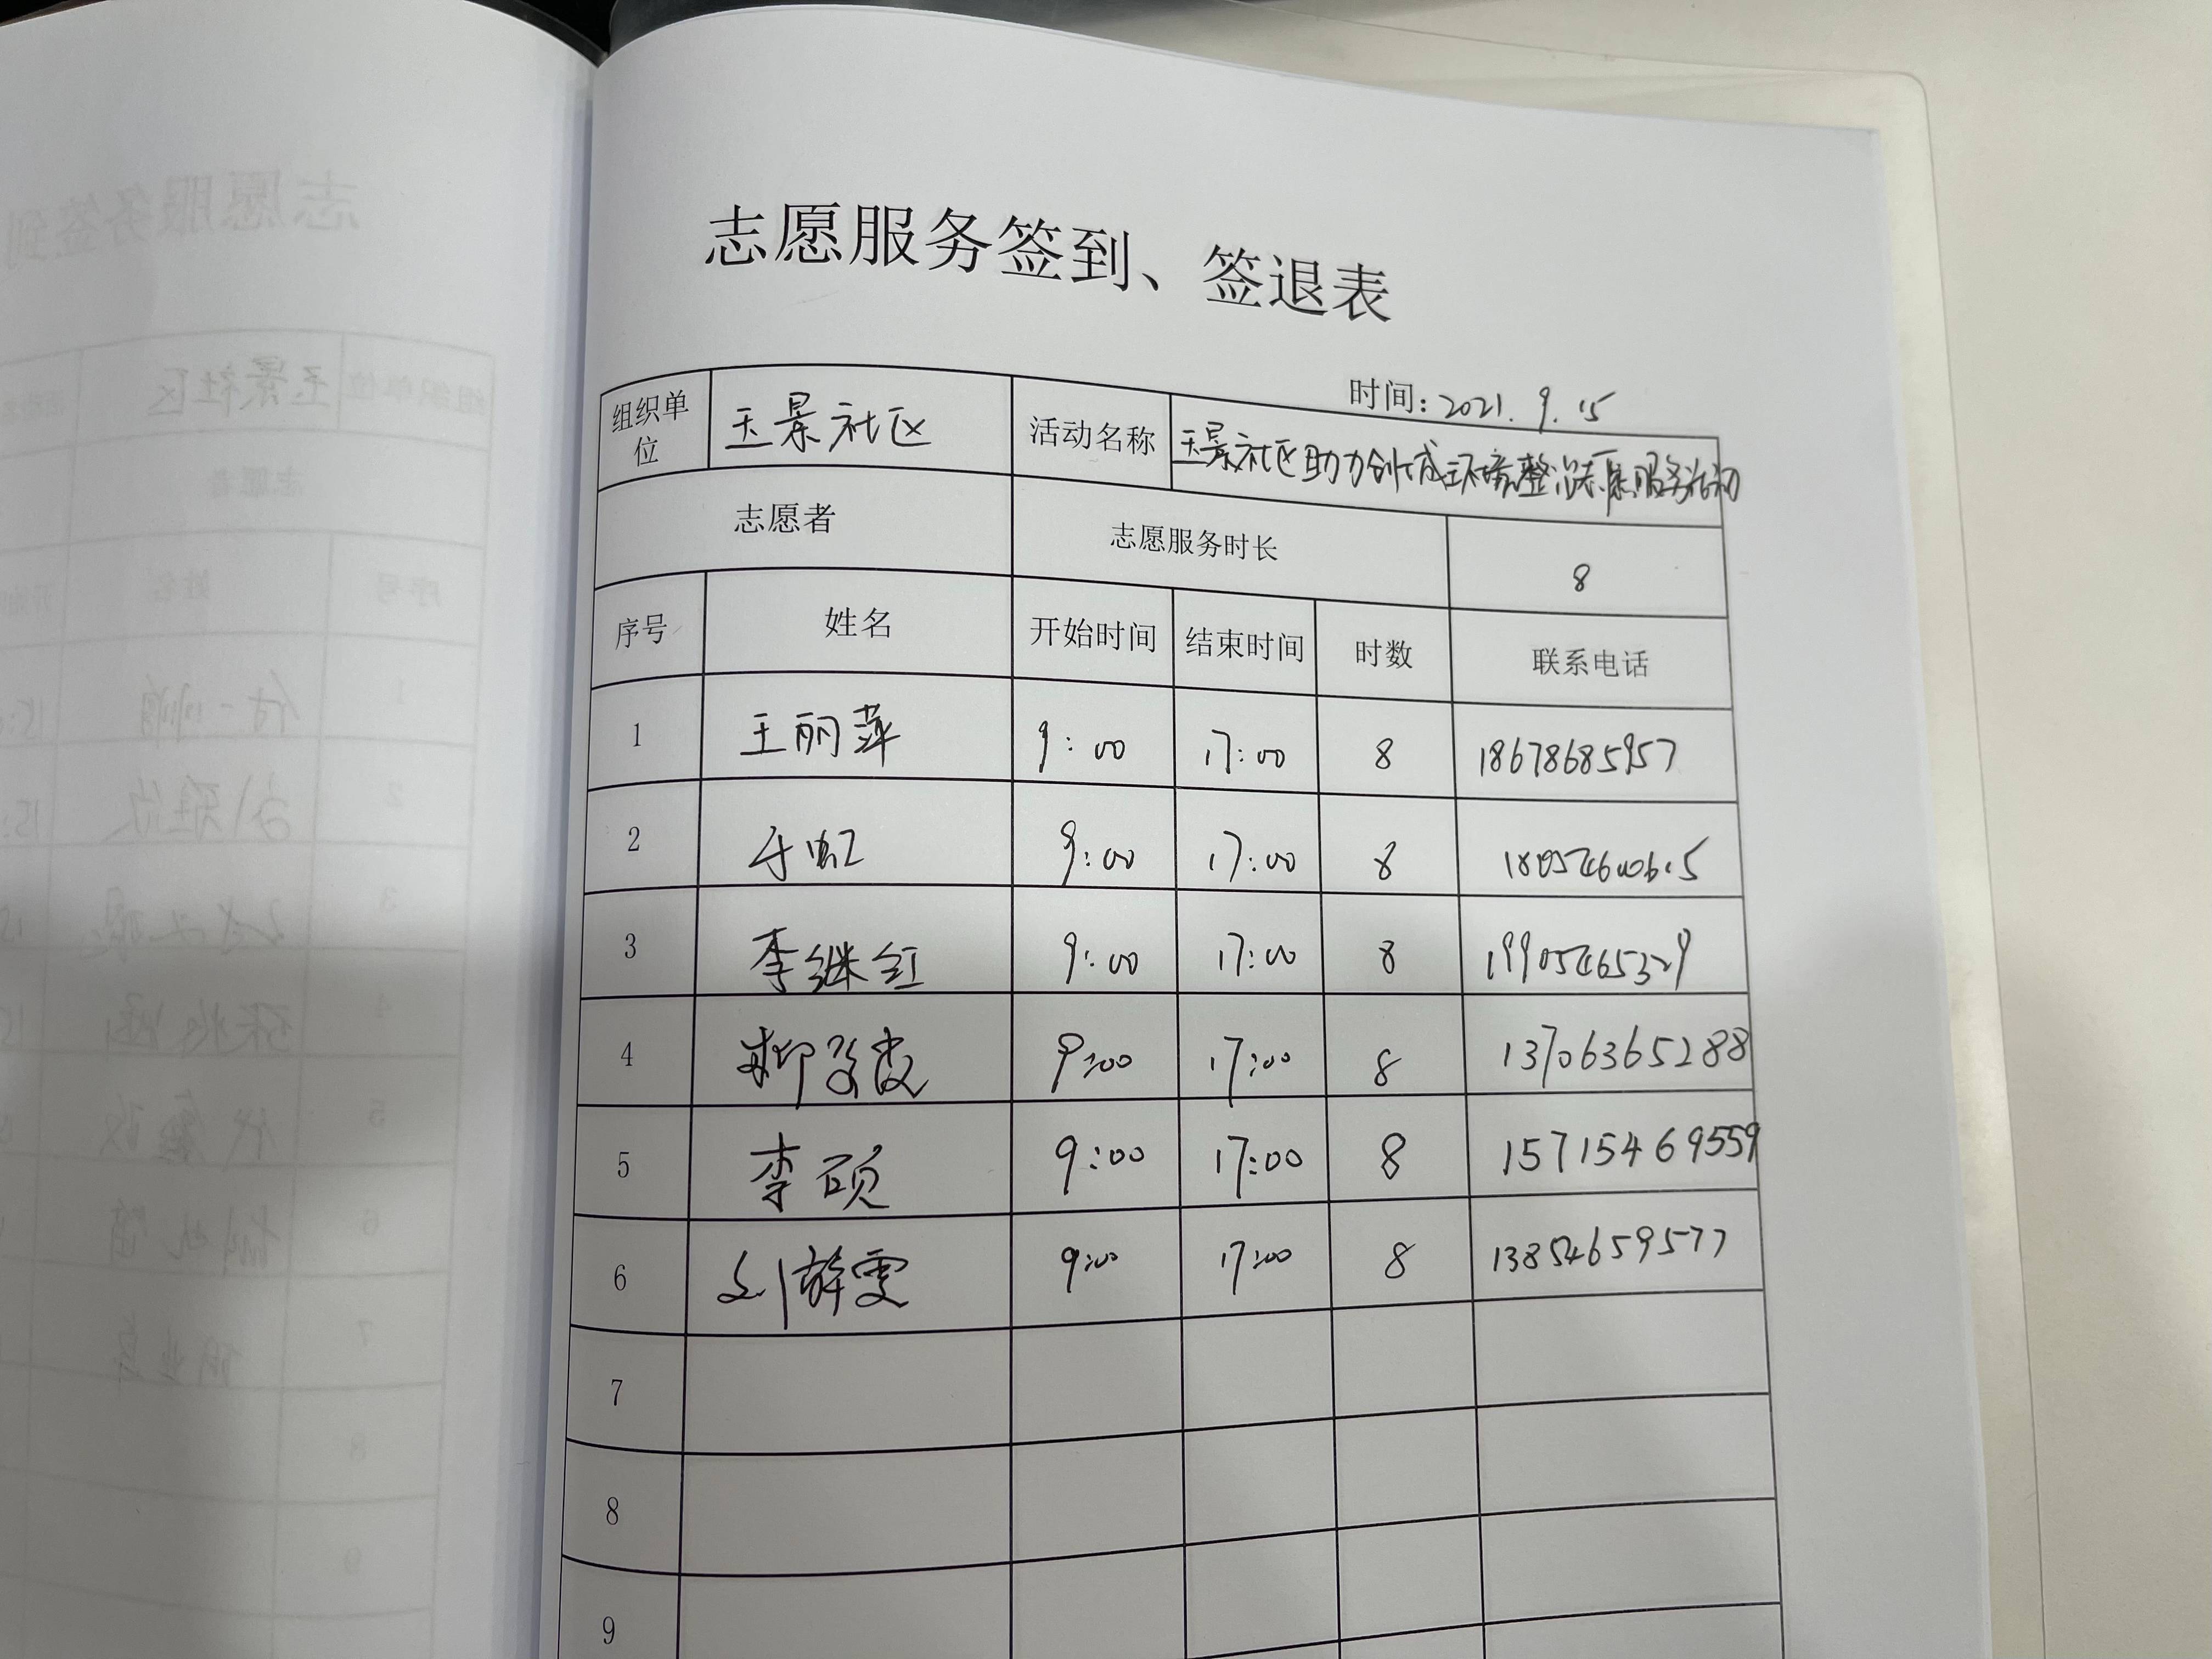 志愿服务签到、签退表
时间：2021.9.15
组织单位 玉景社区 活动名称 玉景社区助力创城环境整治志愿服务活动
志愿者 志愿服务时长 8
序号 姓名 开始时间 结束时间 时数 联系电话
1 王丽萍 9:00 17:00 8 18678685957
2 于虹 9:00 17:00 8
3 李继红 9:00 17:00 8 19905465329
4 9:00 17:00 8 13706365288
5 李硕 9:00 17:00 8 15715469559
6 刘薛雯 9:00 17:00 8 13854659577
7
8
9